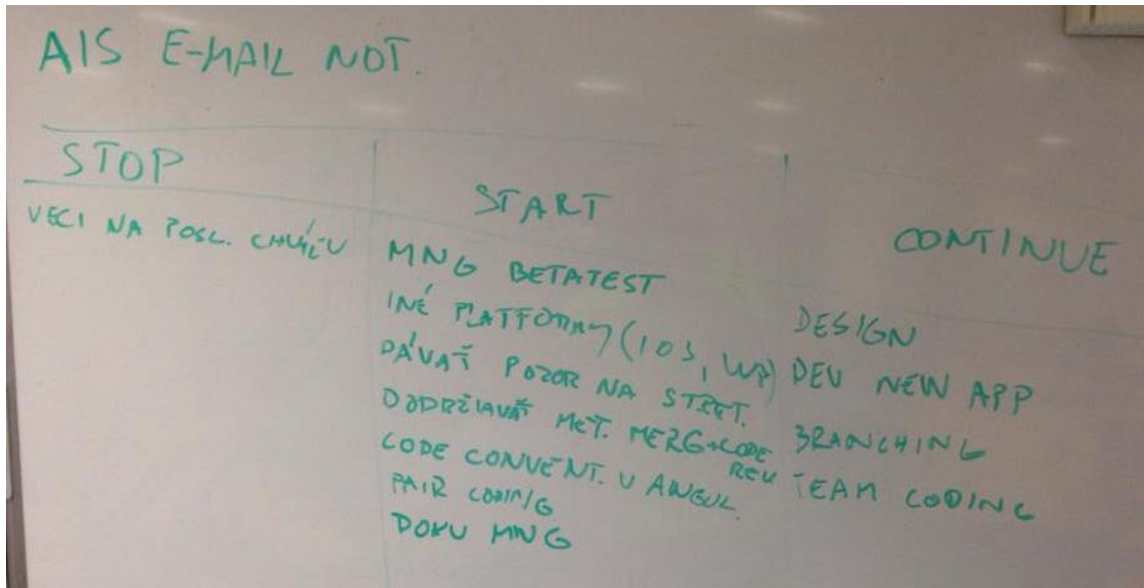 AIS E-MAIL NOT.
STOP
VECI NA POSL. CHVÍĽU
START
MNG BETATEST
INÉ PLATFORMY (IOS, WP)
DÁVAŤ POZOR NA STRET.
DODRŽIAVAŤ MET. MERG+CODE REV
CODE CONVENT. V ANGUL.
PAIR CODING
DOKU MNG
CONTINUE
DESIGN
DEV NEW APP
BRANCHING
TEAM CODING